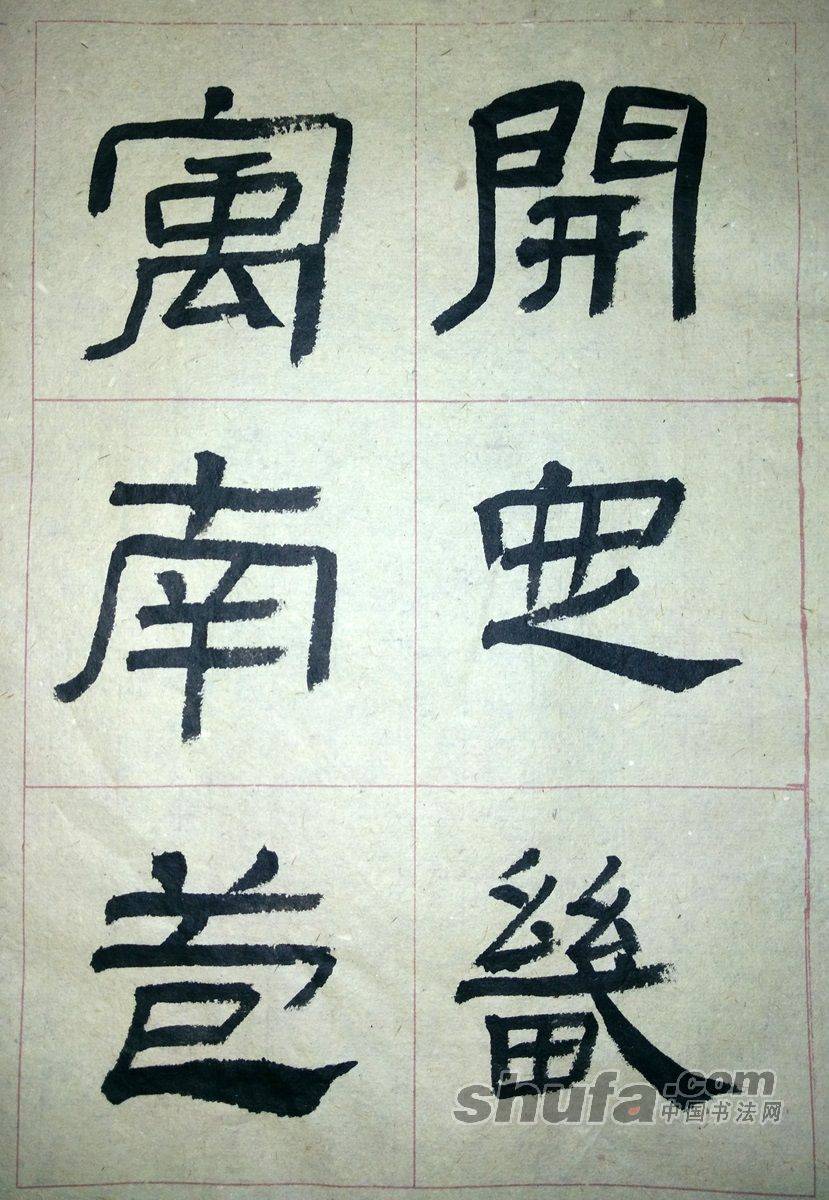 開定畿
寓南苞
shufa.com
中国书法网